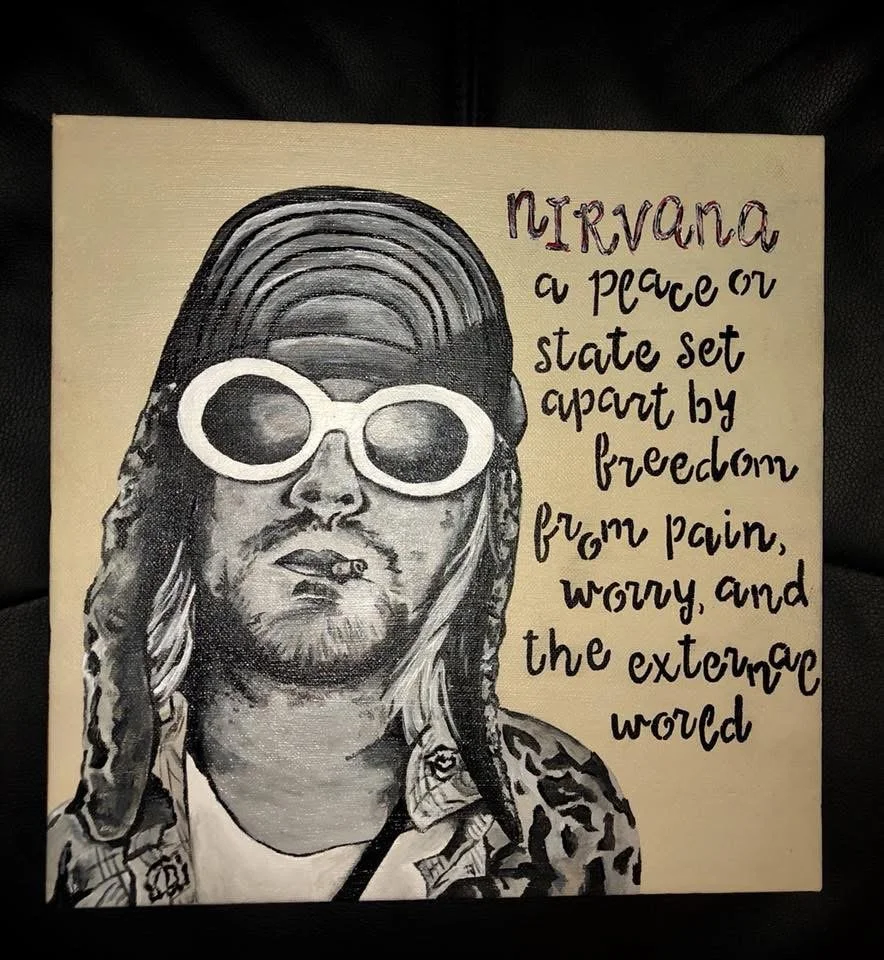 nIRvana
a place or
state set
apart by
freedom
from pain,
worry, and
the external
world